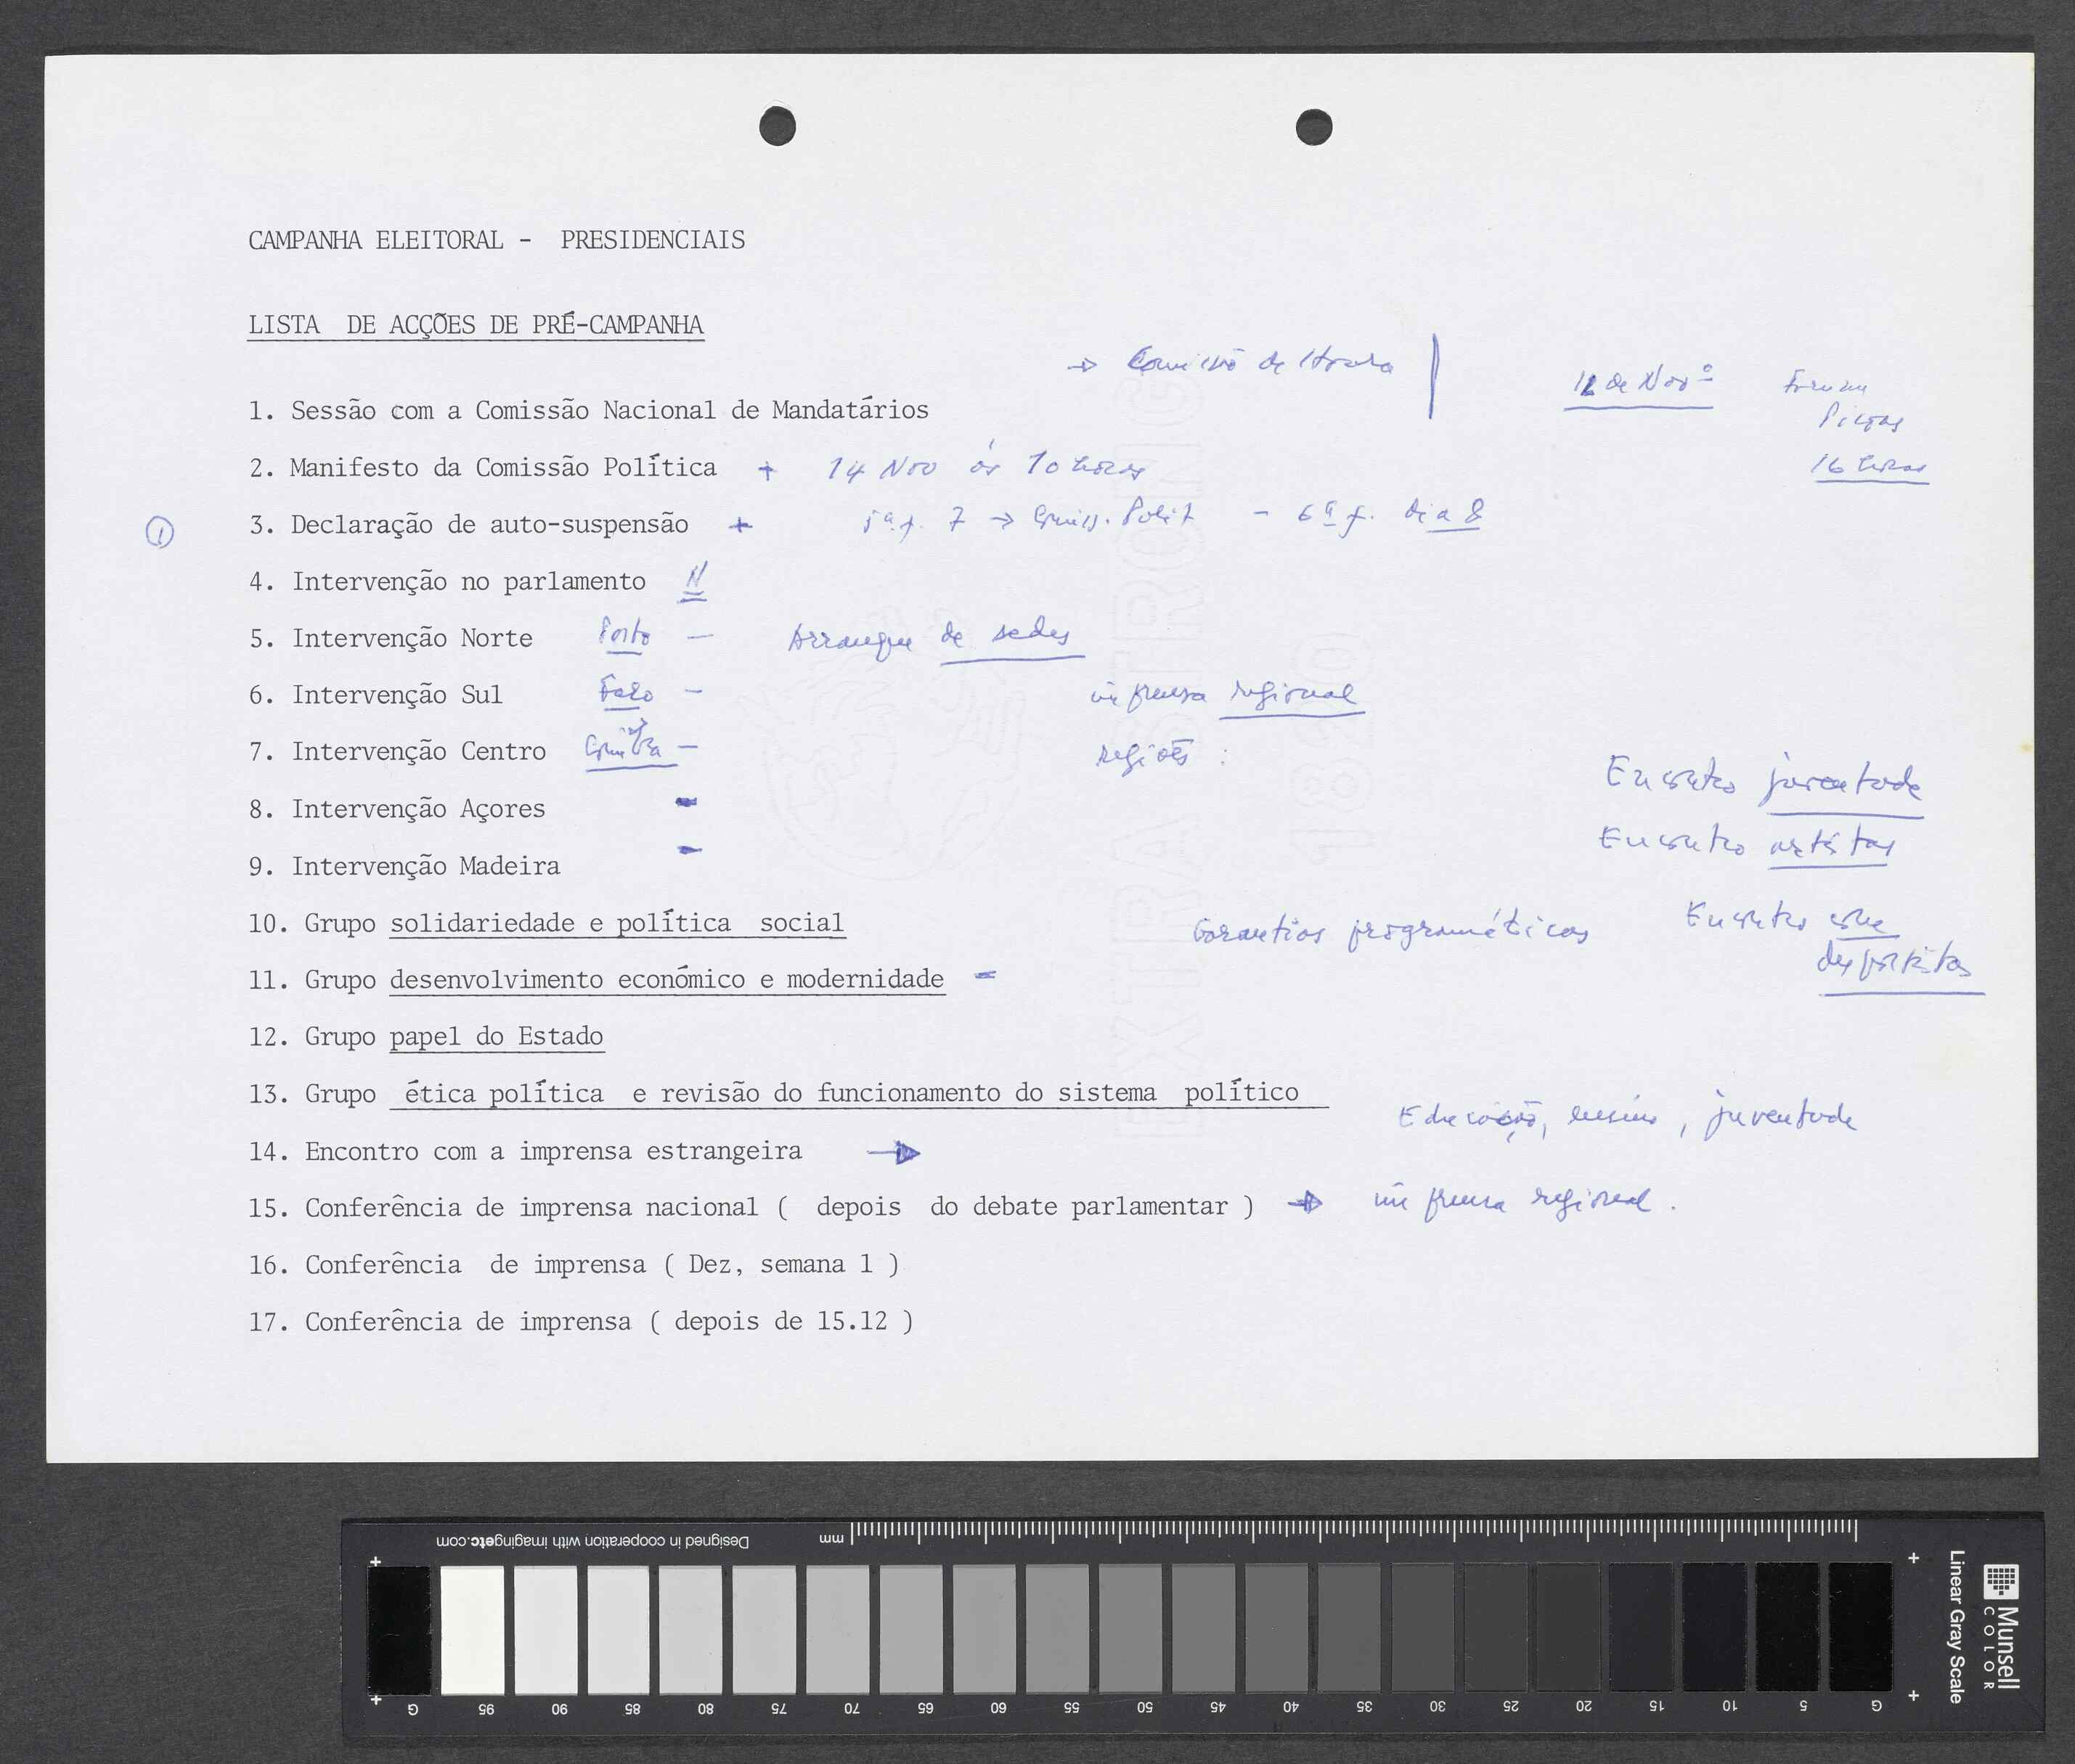 CAMPANHA ELEITORAL - PRESIDENCIAIS
LISTA DE ACÇÕES DE PRÉ-CAMPANHA
→ Comissão de Honra
12 de Novº Forum
Picoas
16 horas
1. Sessão com a Comissão Nacional de Mandatários
2. Manifesto da Comissão Política + 14 Nov às 10 horas
① 3. Declaração de auto-suspensão + 5ª f. 7 → Comiss. Polit - 6ª f. dia 8
4. Intervenção no parlamento N
5. Intervenção Norte Porto — Arranque de sedes
6. Intervenção Sul Faro — imprensa regional
7. Intervenção Centro Coimbra — regiões :
8. Intervenção Açores -
9. Intervenção Madeira -
Encontro juventude
Encontro artistas
10. Grupo solidariedade e política social
Garantias programáticas
Encontro com
desportistas
11. Grupo desenvolvimento económico e modernidade -
12. Grupo papel do Estado
13. Grupo ética política e revisão do funcionamento do sistema político
Educação, ensino, juventude
14. Encontro com a imprensa estrangeira →
15. Conferência de imprensa nacional ( depois do debate parlamentar ) → imprensa regional.
16. Conferência de imprensa ( Dez, semana 1 )
17. Conferência de imprensa ( depois de 15.12 )
EXTRA STRONG
1820
Designed in cooperation with imagingetc.com
mm
G 95 90 85 80 75 70 65 60 55 50 45 40 35 30 25 20 15 10 5 G
Linear Gray Scale
Munsell
COLOR